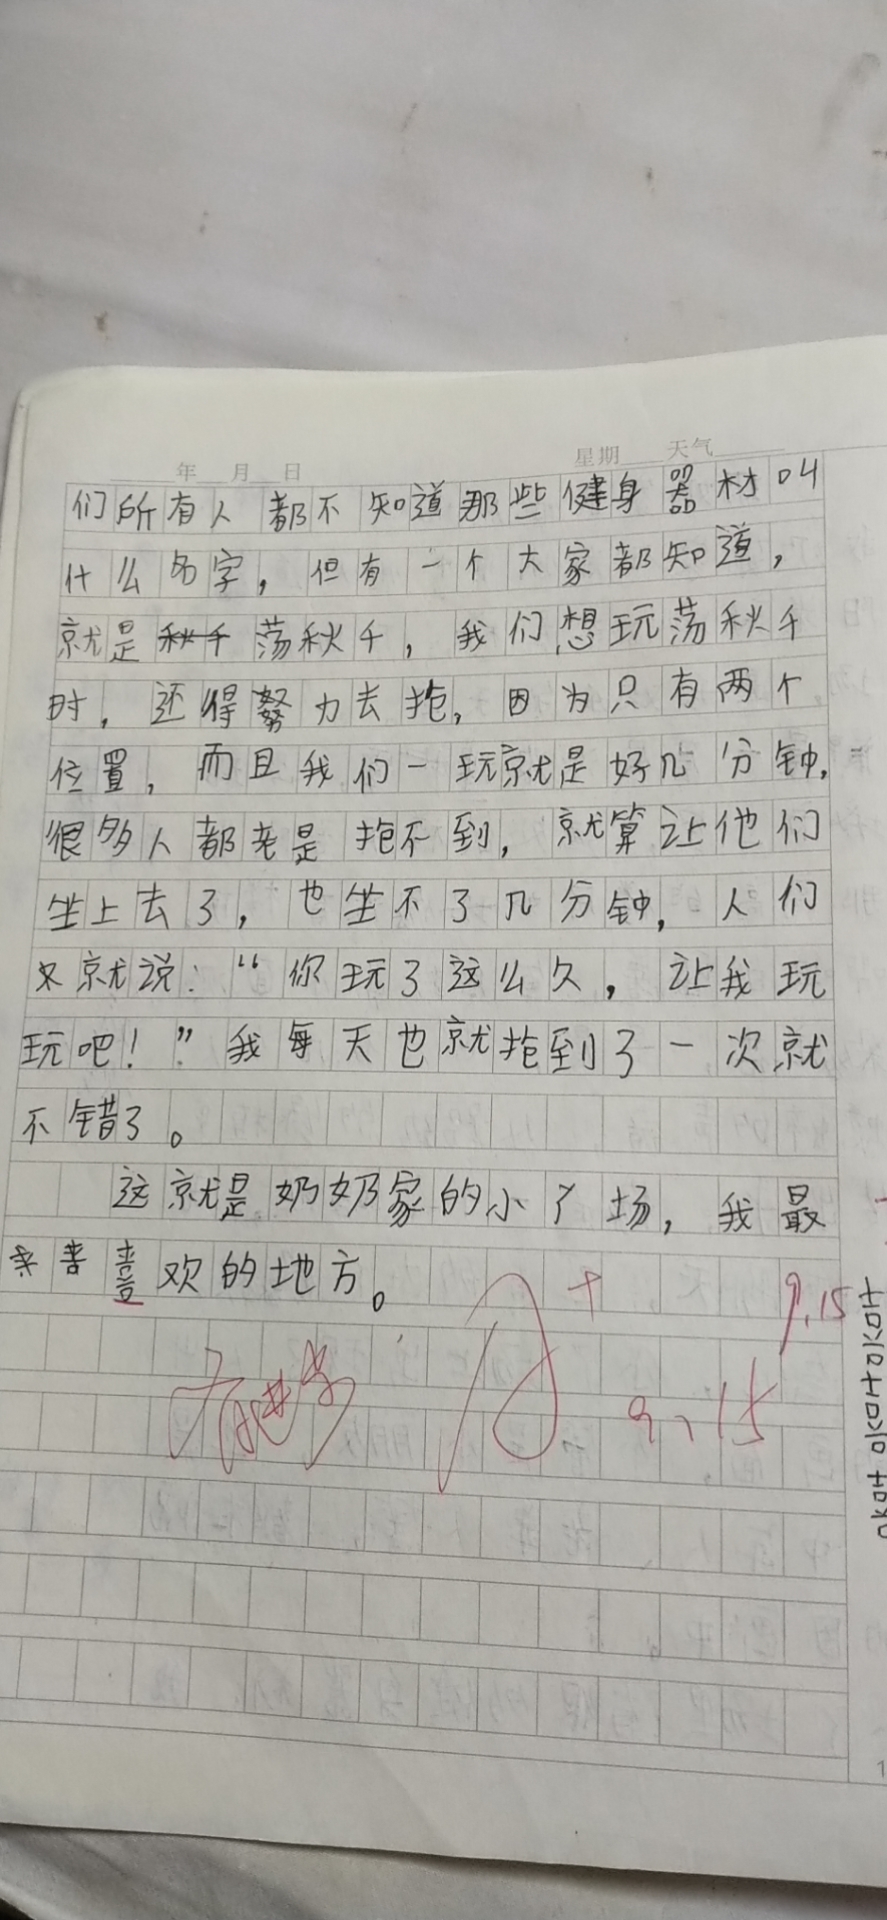 年 月 日 星期 天气
们所有人都不知道那些健身器材叫
什么名字，但有一个大家都知道，
就是秋千荡秋千，我们想玩荡秋千
时，还得努力去抢，因为只有两个
位置，而且我们一玩就是好几分钟，
很多人都老是抢不到，就算让他们
坐上去了，也坐不了几分钟，人们
又就说：“你玩了这么久，让我玩
玩吧！”我每天也就抢到了一次就
不错了。
这就是奶奶家的小广场，我最
喜欢的地方。
9.15
有进步
9、15